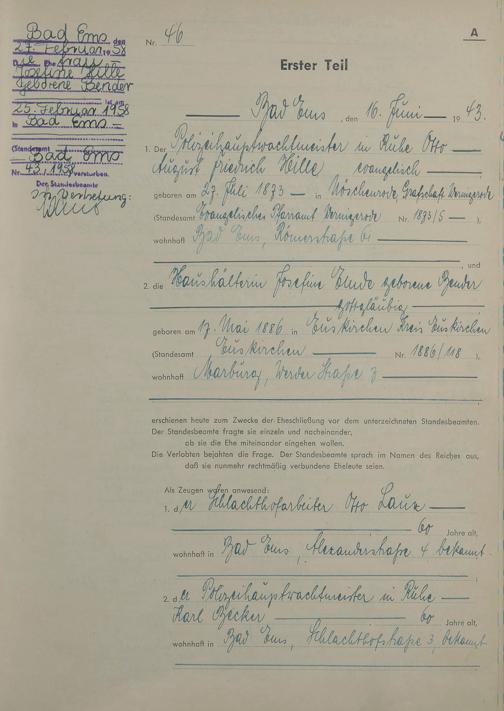 Bad Ems den
27. Februar 1958
Die Ehefrau
Josefine Hille
geborene Bender
ist am
25. Februar 1958
in Bad Ems
(Standesamt
Bad Ems
Nr. 43/1958 verstorben.
Der Standesbeamte
In Vertretung:
A
Nr. 46
Erster Teil
Bad Ems, den 16. Juni 1943.
1. Der Polizeihauptwachtmeister in Ruhe Otto
August Friedrich Hille evangelisch
geboren am 27. Juli 1873 in Nöschenrode, Grafschaft Wernigerode
(Standesamt Evangelisches Pfarramt Wernigerode Nr. 1873/5 ),
wohnhaft Bad Ems, Römerstraße 61
, und
2. die Haushälterin Josefine Emde geborene Bender
gottgläubig
geboren am 17. Mai 1886 in Euskirchen Kreis Euskirchen
(Standesamt Euskirchen Nr. 1886/118 ),
wohnhaft Marburg, Werder Straße 3
erschienen heute zum Zwecke der Eheschließung vor dem unterzeichneten Standesbeamten.
Der Standesbeamte fragte sie einzeln und nacheinander,
ob sie die Ehe miteinander eingehen wollen.
Die Verlobten bejahten die Frage. Der Standesbeamte sprach im Namen des Reiches aus,
daß sie nunmehr rechtmäßig verbundene Eheleute seien.
Als Zeugen waren anwesend:
1. der Schlachthofarbeiter Otto
60 Jahre alt,
wohnhaft in Bad Ems, Alexanderstraße 4 bekannt
2. der Polizeihauptwachtmeister in Ruhe
Karl Becker 60 Jahre alt,
wohnhaft in Bad Ems, Schlachthofstraße 3, bekannt